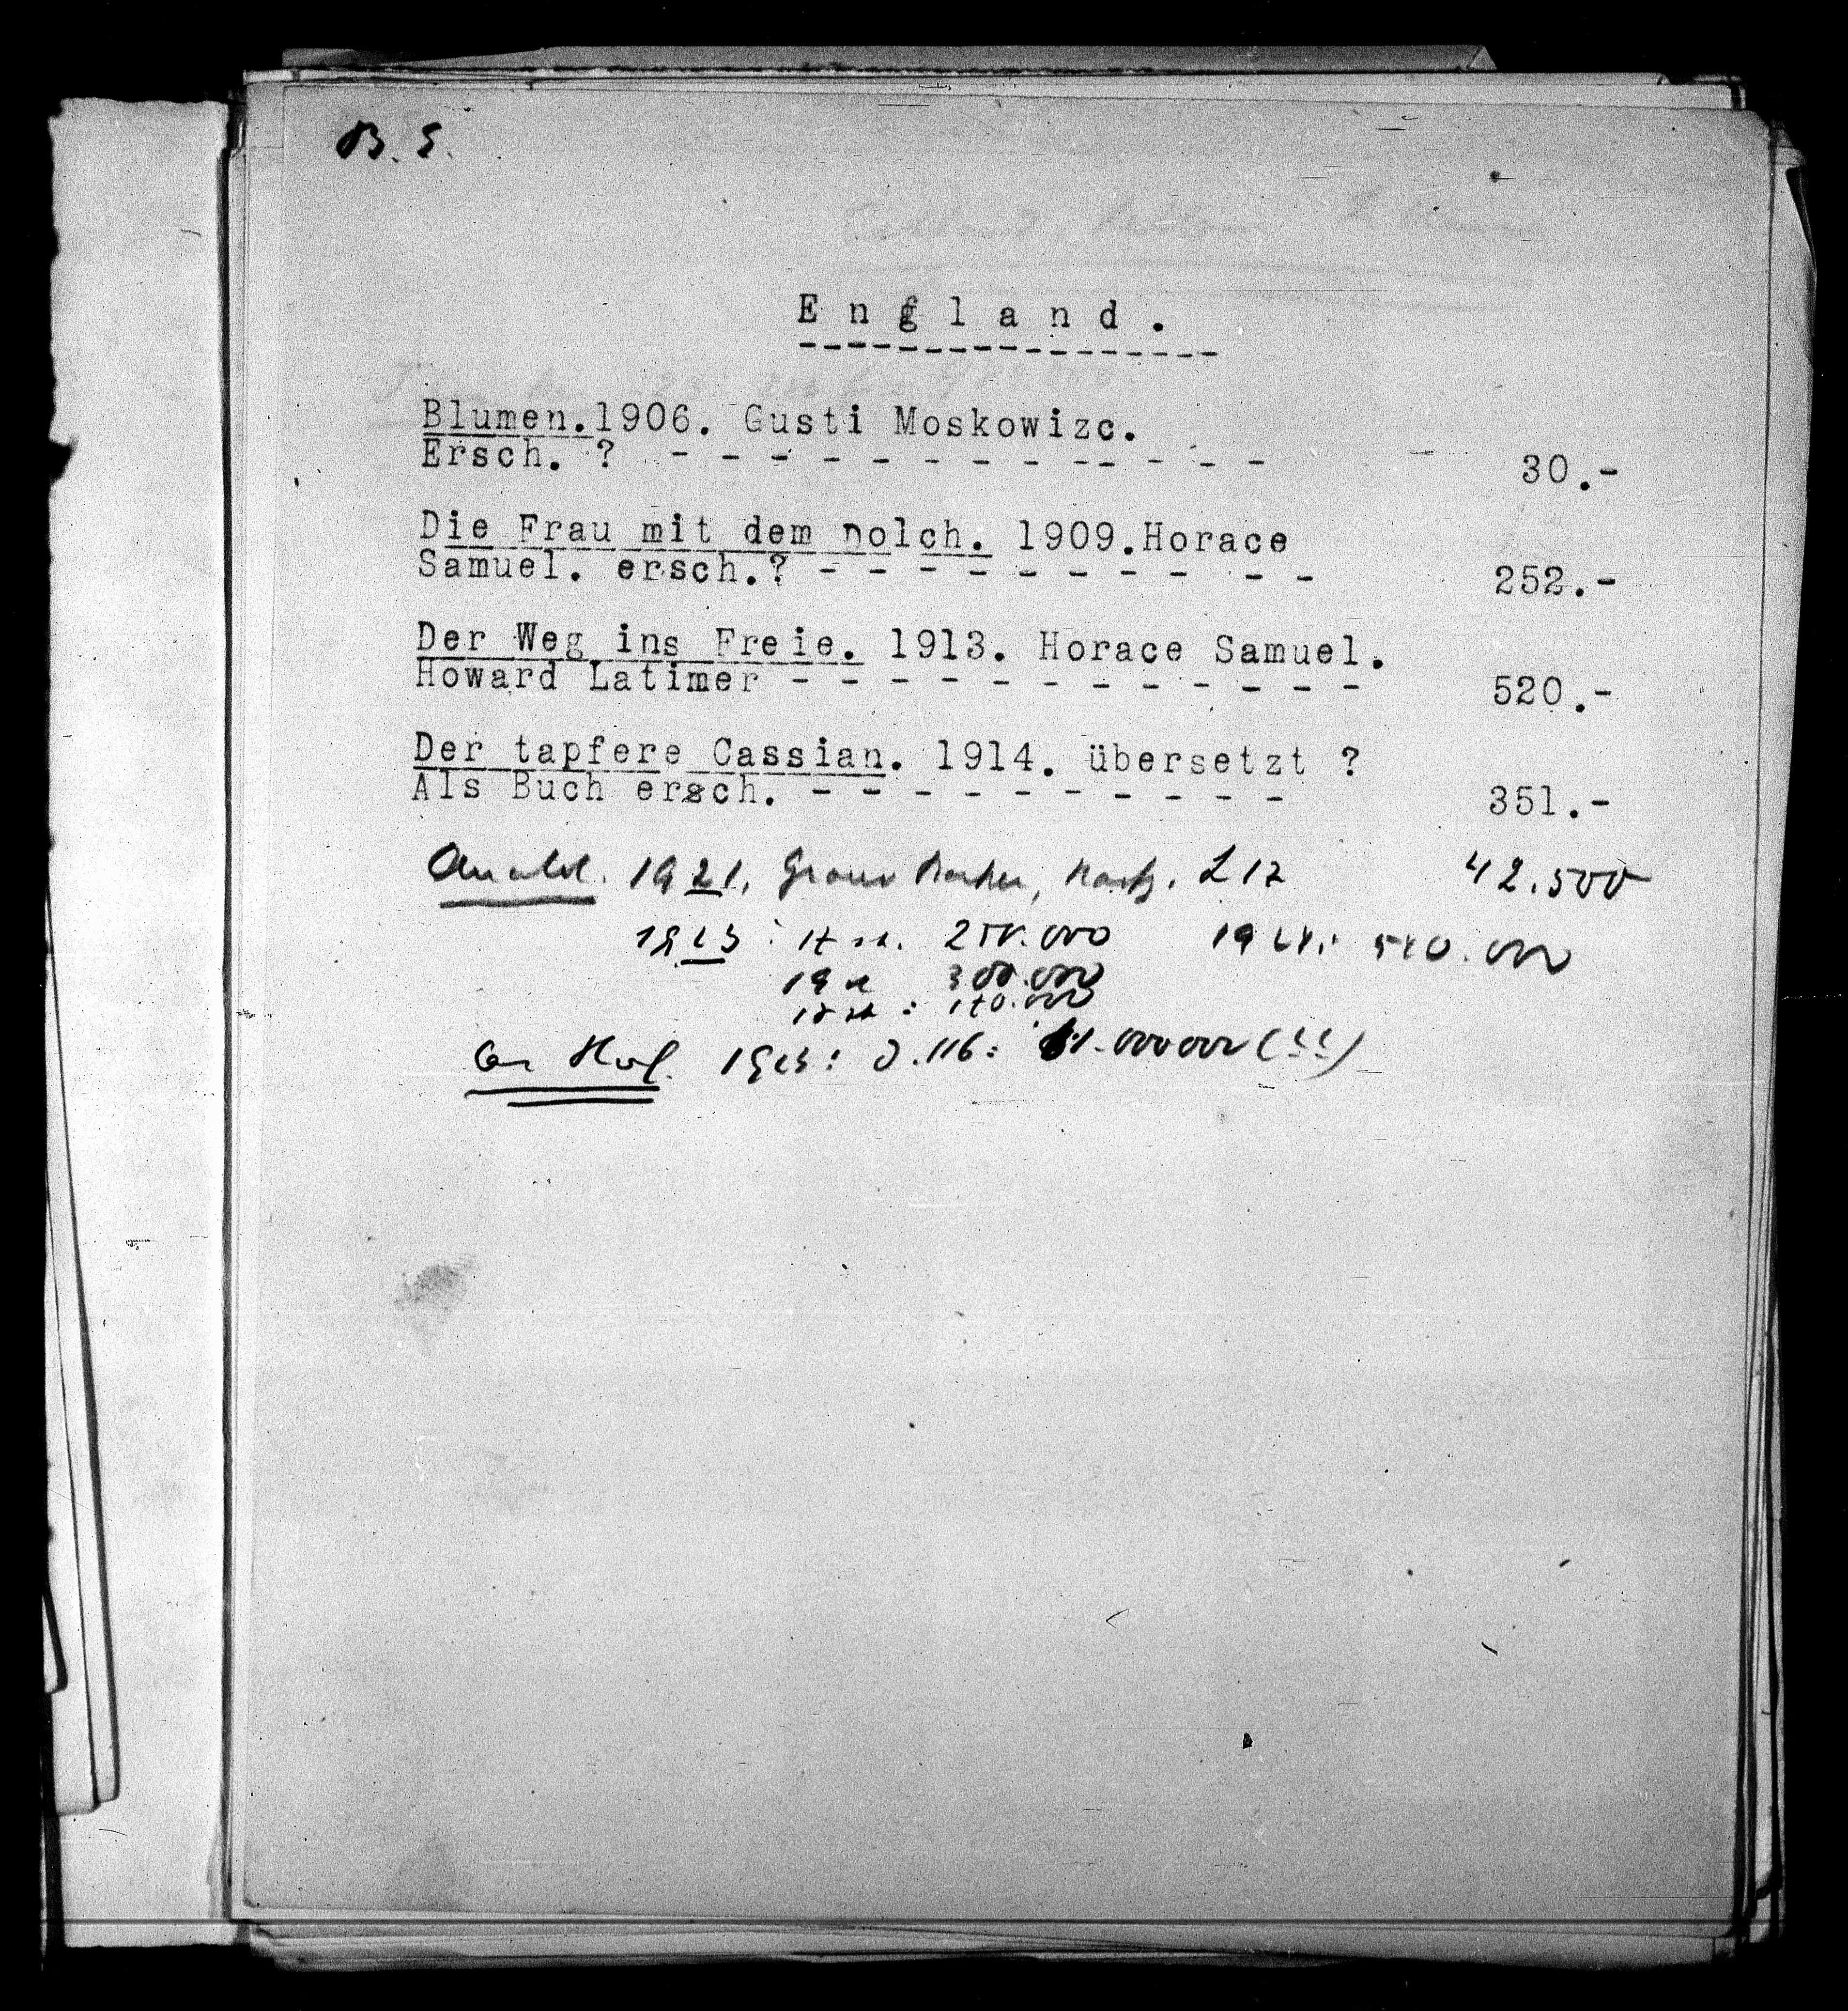 B. S.
England.
-----------------
Blumen.1906. Gusti Moskowizc.
Ersch. ? - - - - - - - - - -- - - - 30.-
Die Frau mit dem Dolch. 1909.Horace
Samuel. ersch.? - - - - - - - - - - 252.-
Der Weg ins Freie. 1913. Horace Samuel.
Howard Latimer - - - - - - - - - - - - 520.-
Der tapfere Cassian. 1914. übersetzt ?
Als Buch ersch. - - - - - - - - - - 351.-
Anatol. 1921, Granv Barker, £ 17 42.500
1923: 250.000
300.000
170.000
1923: